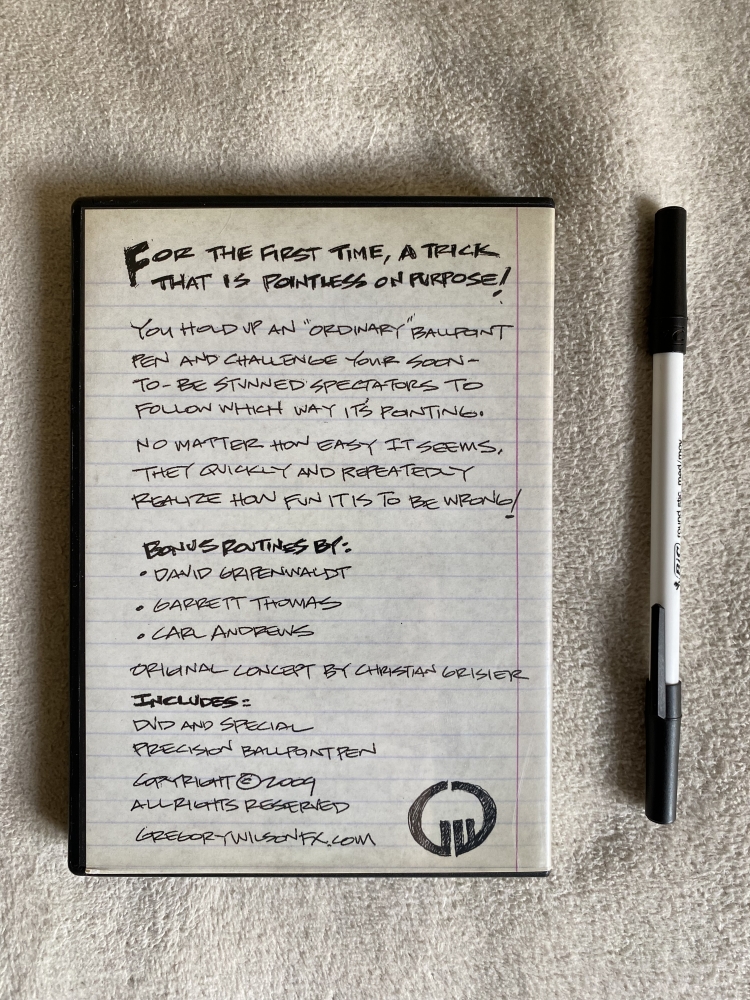 FOR THE FIRST TIME, A TRICK
THAT IS POINTLESS ON PURPOSE!
YOU HOLD UP AN "ORDINARY" BALLPOINT
PEN AND CHALLENGE YOUR SOON-
TO-BE STUNNED SPECTATORS TO
FOLLOW WHICH WAY IT'S POINTING.
NO MATTER HOW EASY IT SEEMS,
THEY QUICKLY AND REPEATEDLY
REALIZE HOW FUN IT IS TO BE WRONG!
BONUS ROUTINES BY:
• DAVID GRIPENWALDT
• GARRETT THOMAS
• CARL ANDREWS
ORIGINAL CONCEPT BY CHRISTIAN GRISIER
INCLUDES:
DVD AND SPECIAL
PRECISION BALLPOINT PEN
COPYRIGHT © 2009
ALL RIGHTS RESERVED
GREGORYWILSONFX.COM
GW
BIC round stic med/moy